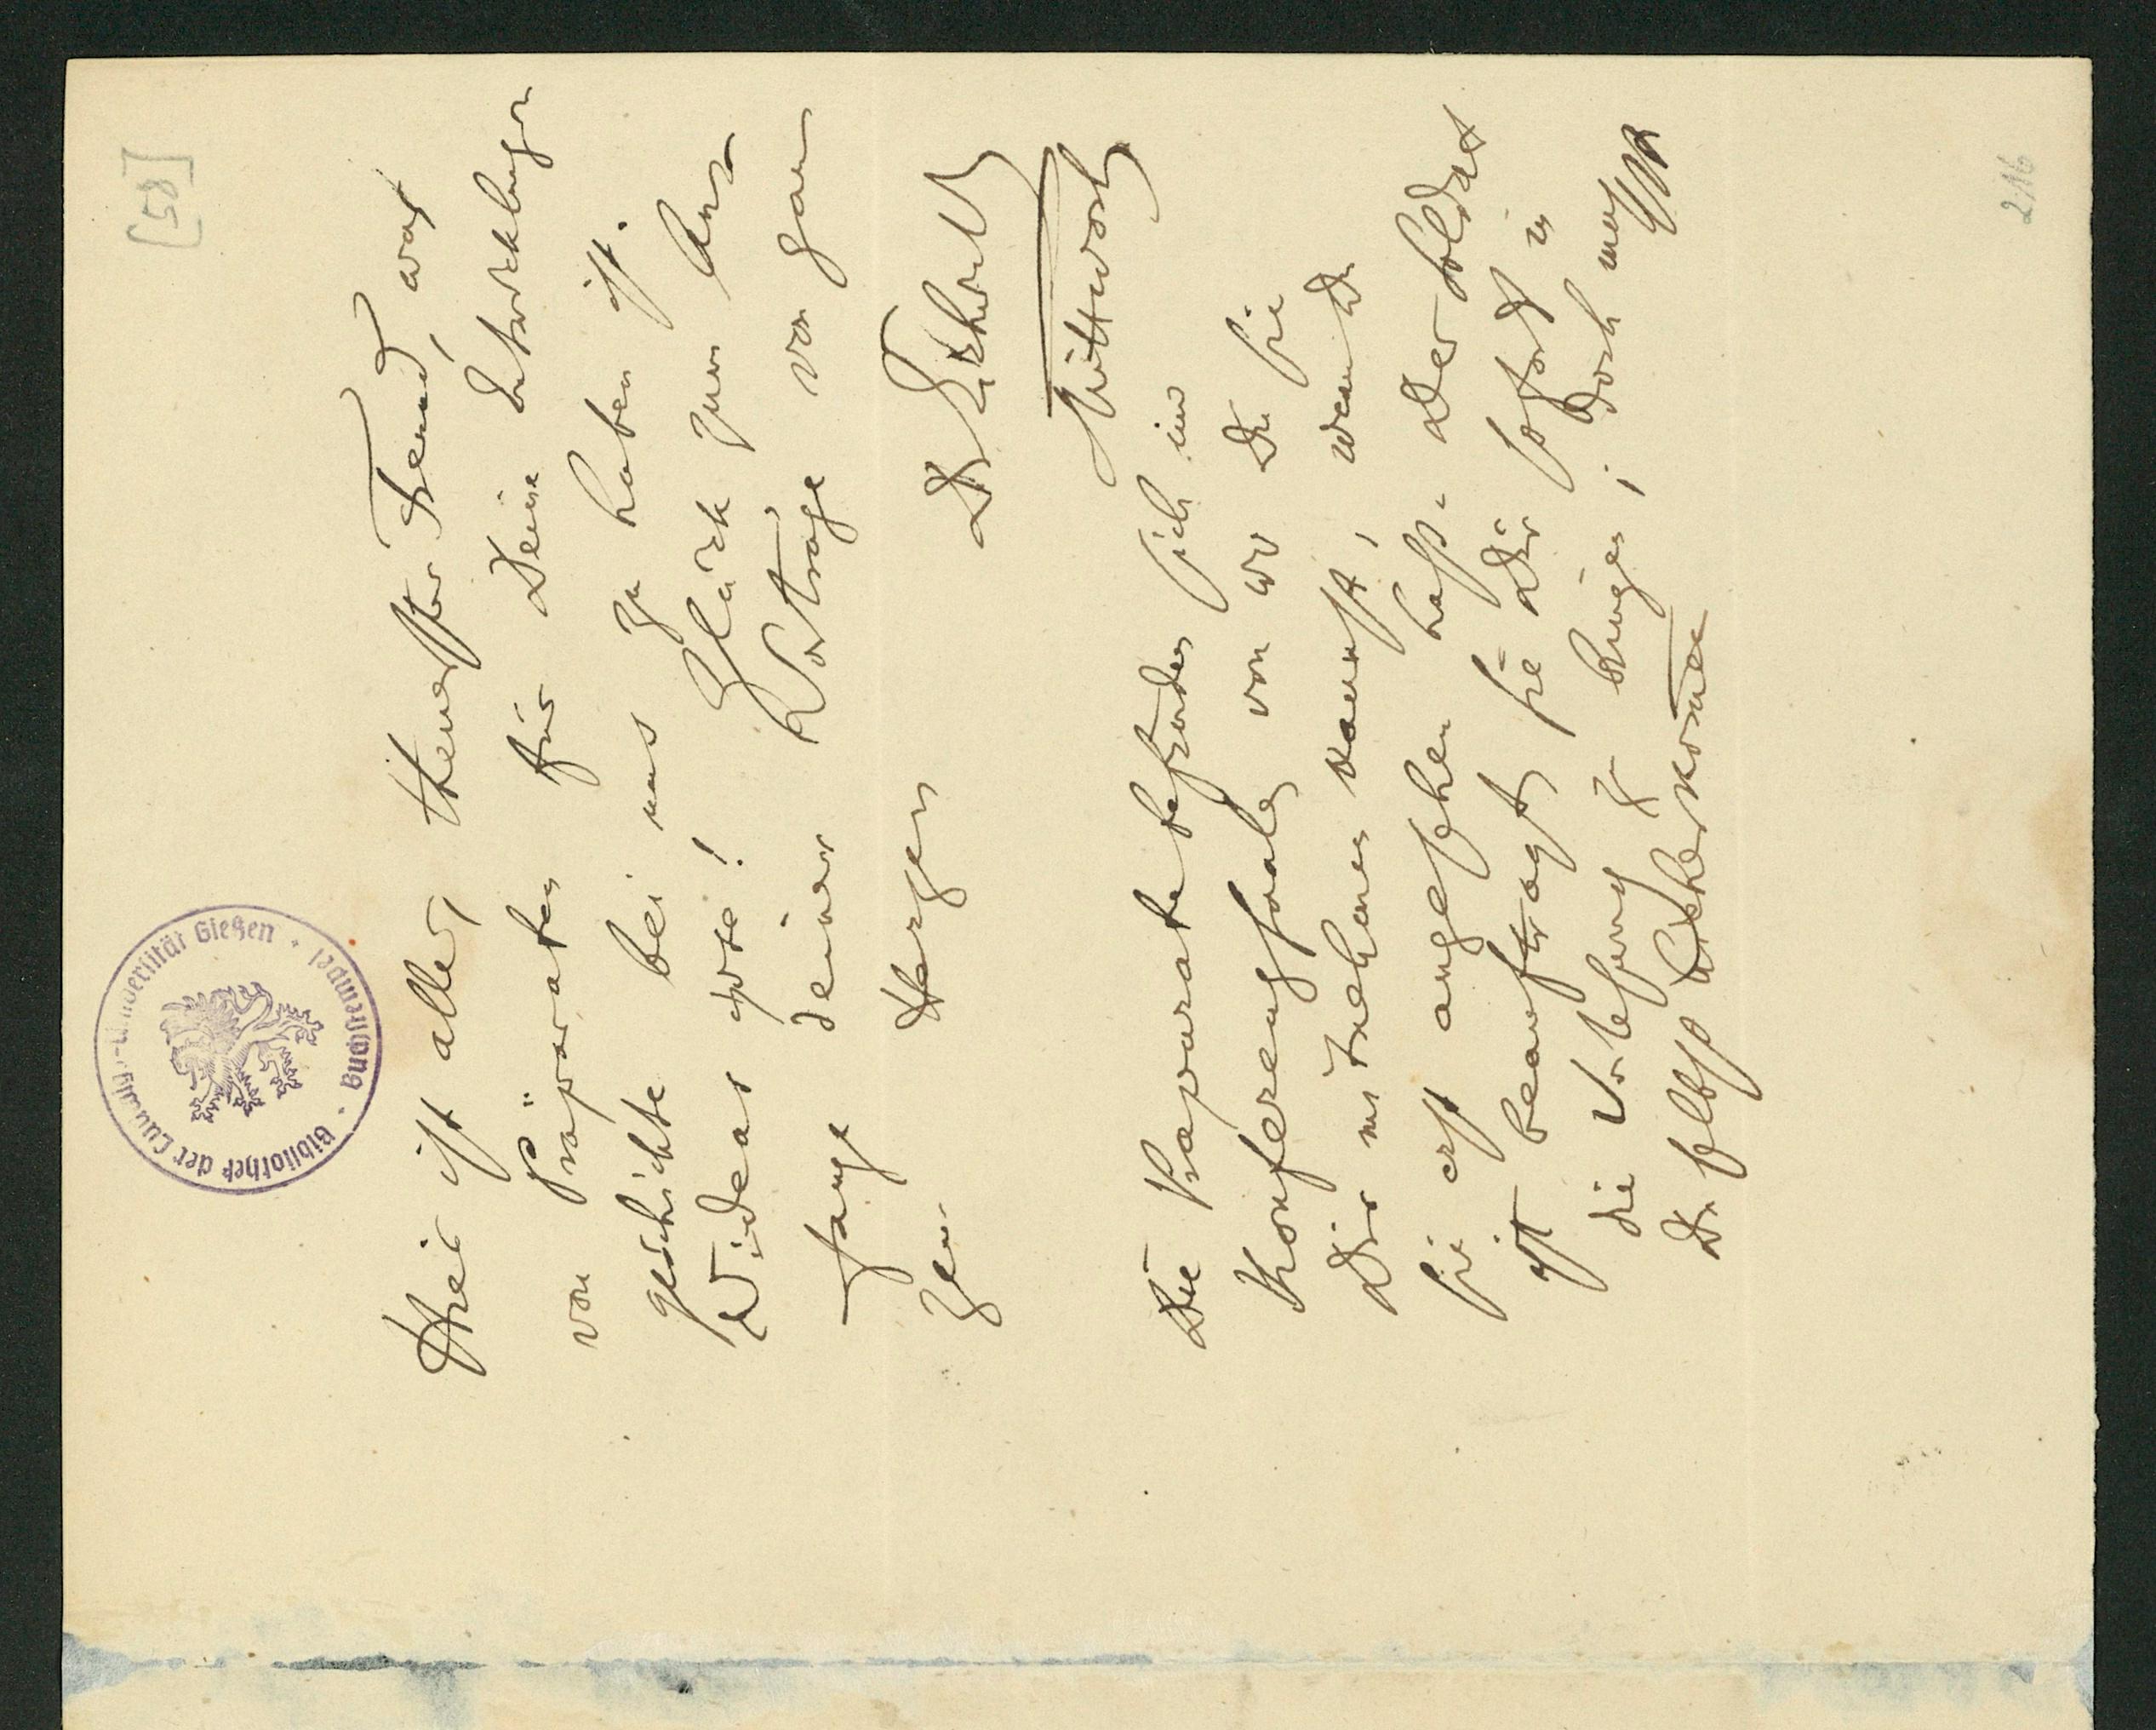 [58]
Bibliothek der Ludwigs-Universität Gießen · Buchstempel ·
Hier ist alles, theuerster Freund, was
von Präparaten für Deine Entwicklungs
geschichte bei uns zu haben ist.
Glück zum An
fange Deiner Vorträge von gan
zem Herzen
D
Mittwoch
Die Präparate befinden sich im
Konferenzsaale, von wo Du sie
Dir nehmen kannst, wenn Du
sie erst angesehen hast. Der Soldat
ist beauftragt sie Dir sofort in
die Vorlesung zu bringen; doch mußt
Du selbst
216